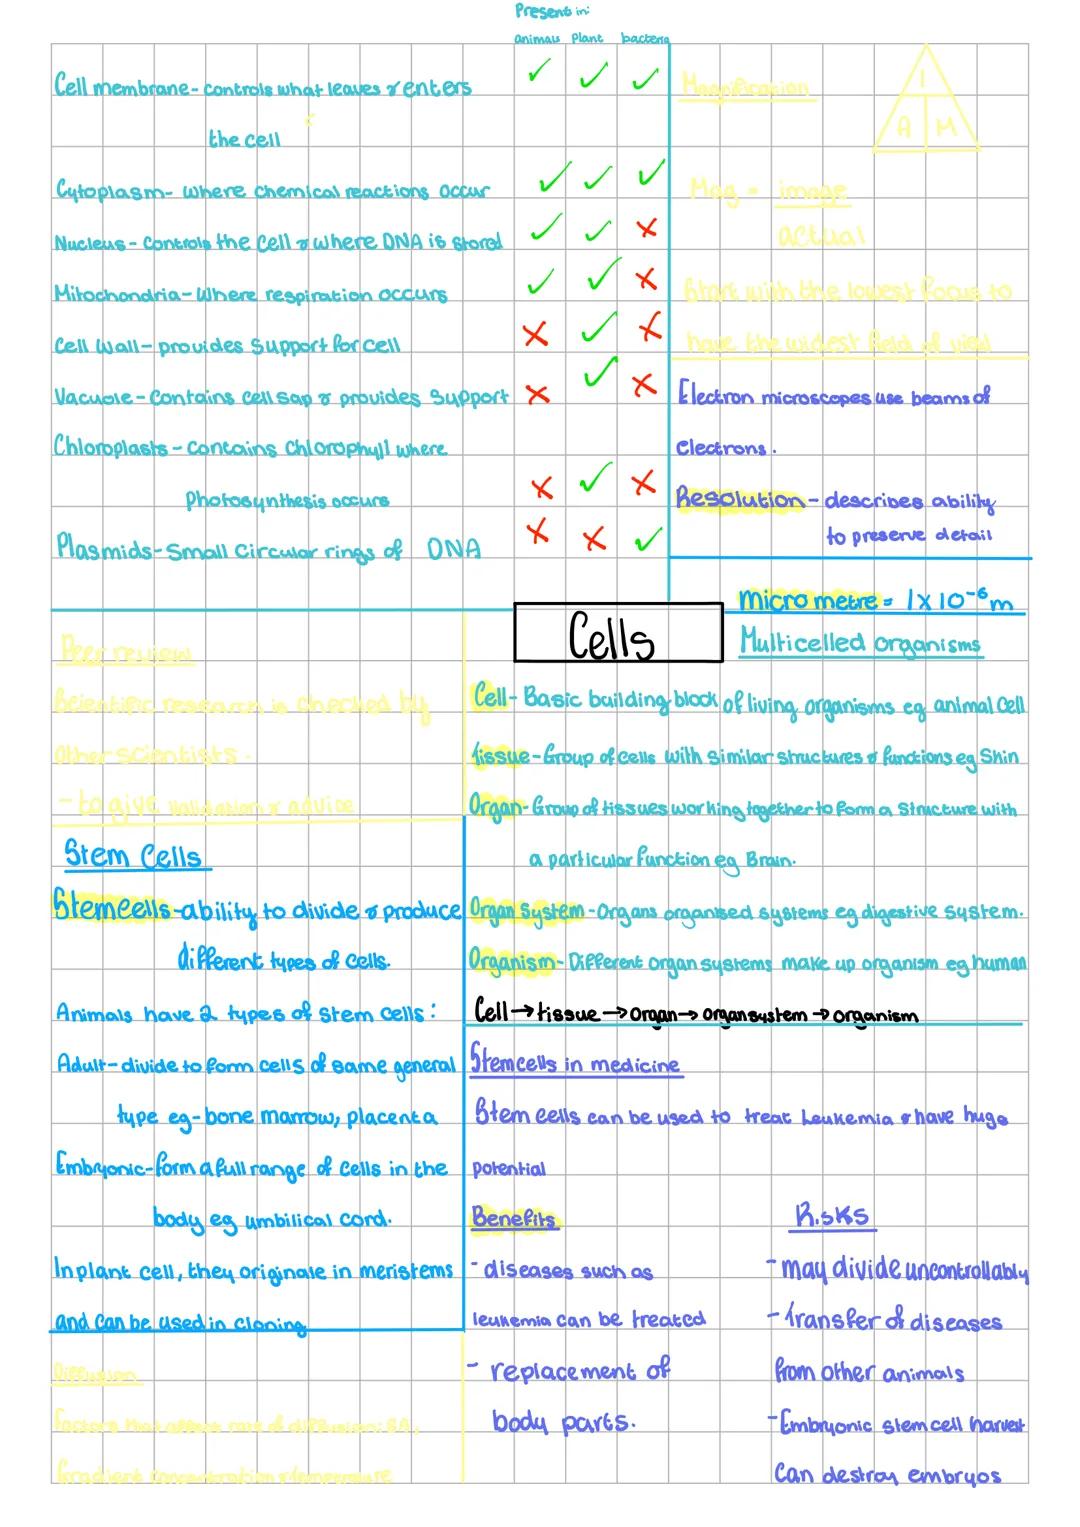 Present in:
animals plant bacteria
Cell membrane- controls what leaves & enters
the cell
Cytoplasm- where chemical reactions occur
Nucleus- controls the cell & where DNA is stored
Mitochondria- Where respiration occurs
Cell Wall- provides support for cell
Vacuole- Contains cell sap & provides support
Chloroplasts- contains chlorophyll where
Photosynthesis occurs
Plasmids- Small circular rings of DNA
Magnification
I
A M
Mag = image
actual
Start with the lowest focus to
have the widest field of view
Electron microscopes use beams of
electrons.
Resolution- describes ability
to preserve detail
Micrometre = 1x10⁻⁶m
Cells
Multicelled organisms
Cell- Basic building block of living organisms eg animal cell
Tissue- Group of cells with similar structures & functions eg Skin
Organ- Group of tissues working together to form a structure with
a particular function eg Brain.
Organ system- Organs organised systems eg digestive system.
Organism- Different organ systems make up organism eg human
Cell → tissue → organ → organ system → organism
Peer review
Scientific research is checked by
other scientists.
- to give validation & advice
Stem Cells
Stem cells- ability to divide & produce
different types of cells.
Animals have 2 types of stem cells:
Adult- divide to form cells of same general
type eg- bone marrow, placenta
Embryonic- form a full range of cells in the
body eg umbilical cord.
In plant cell, they originate in meristems
and can be used in cloning
Diffusion
Factors that affect rate of diffusion: SA,
Gradient concentration & temperature
Stem cells in medicine
Stem cells can be used to treat Leukemia & have huge
potential
Benefits
- diseases such as
leukemia can be treated
- replacement of
body parts.
Risks
- may divide uncontrollably
- Transfer of diseases
from other animals
- Embryonic stem cell harvest
can destroy embryos